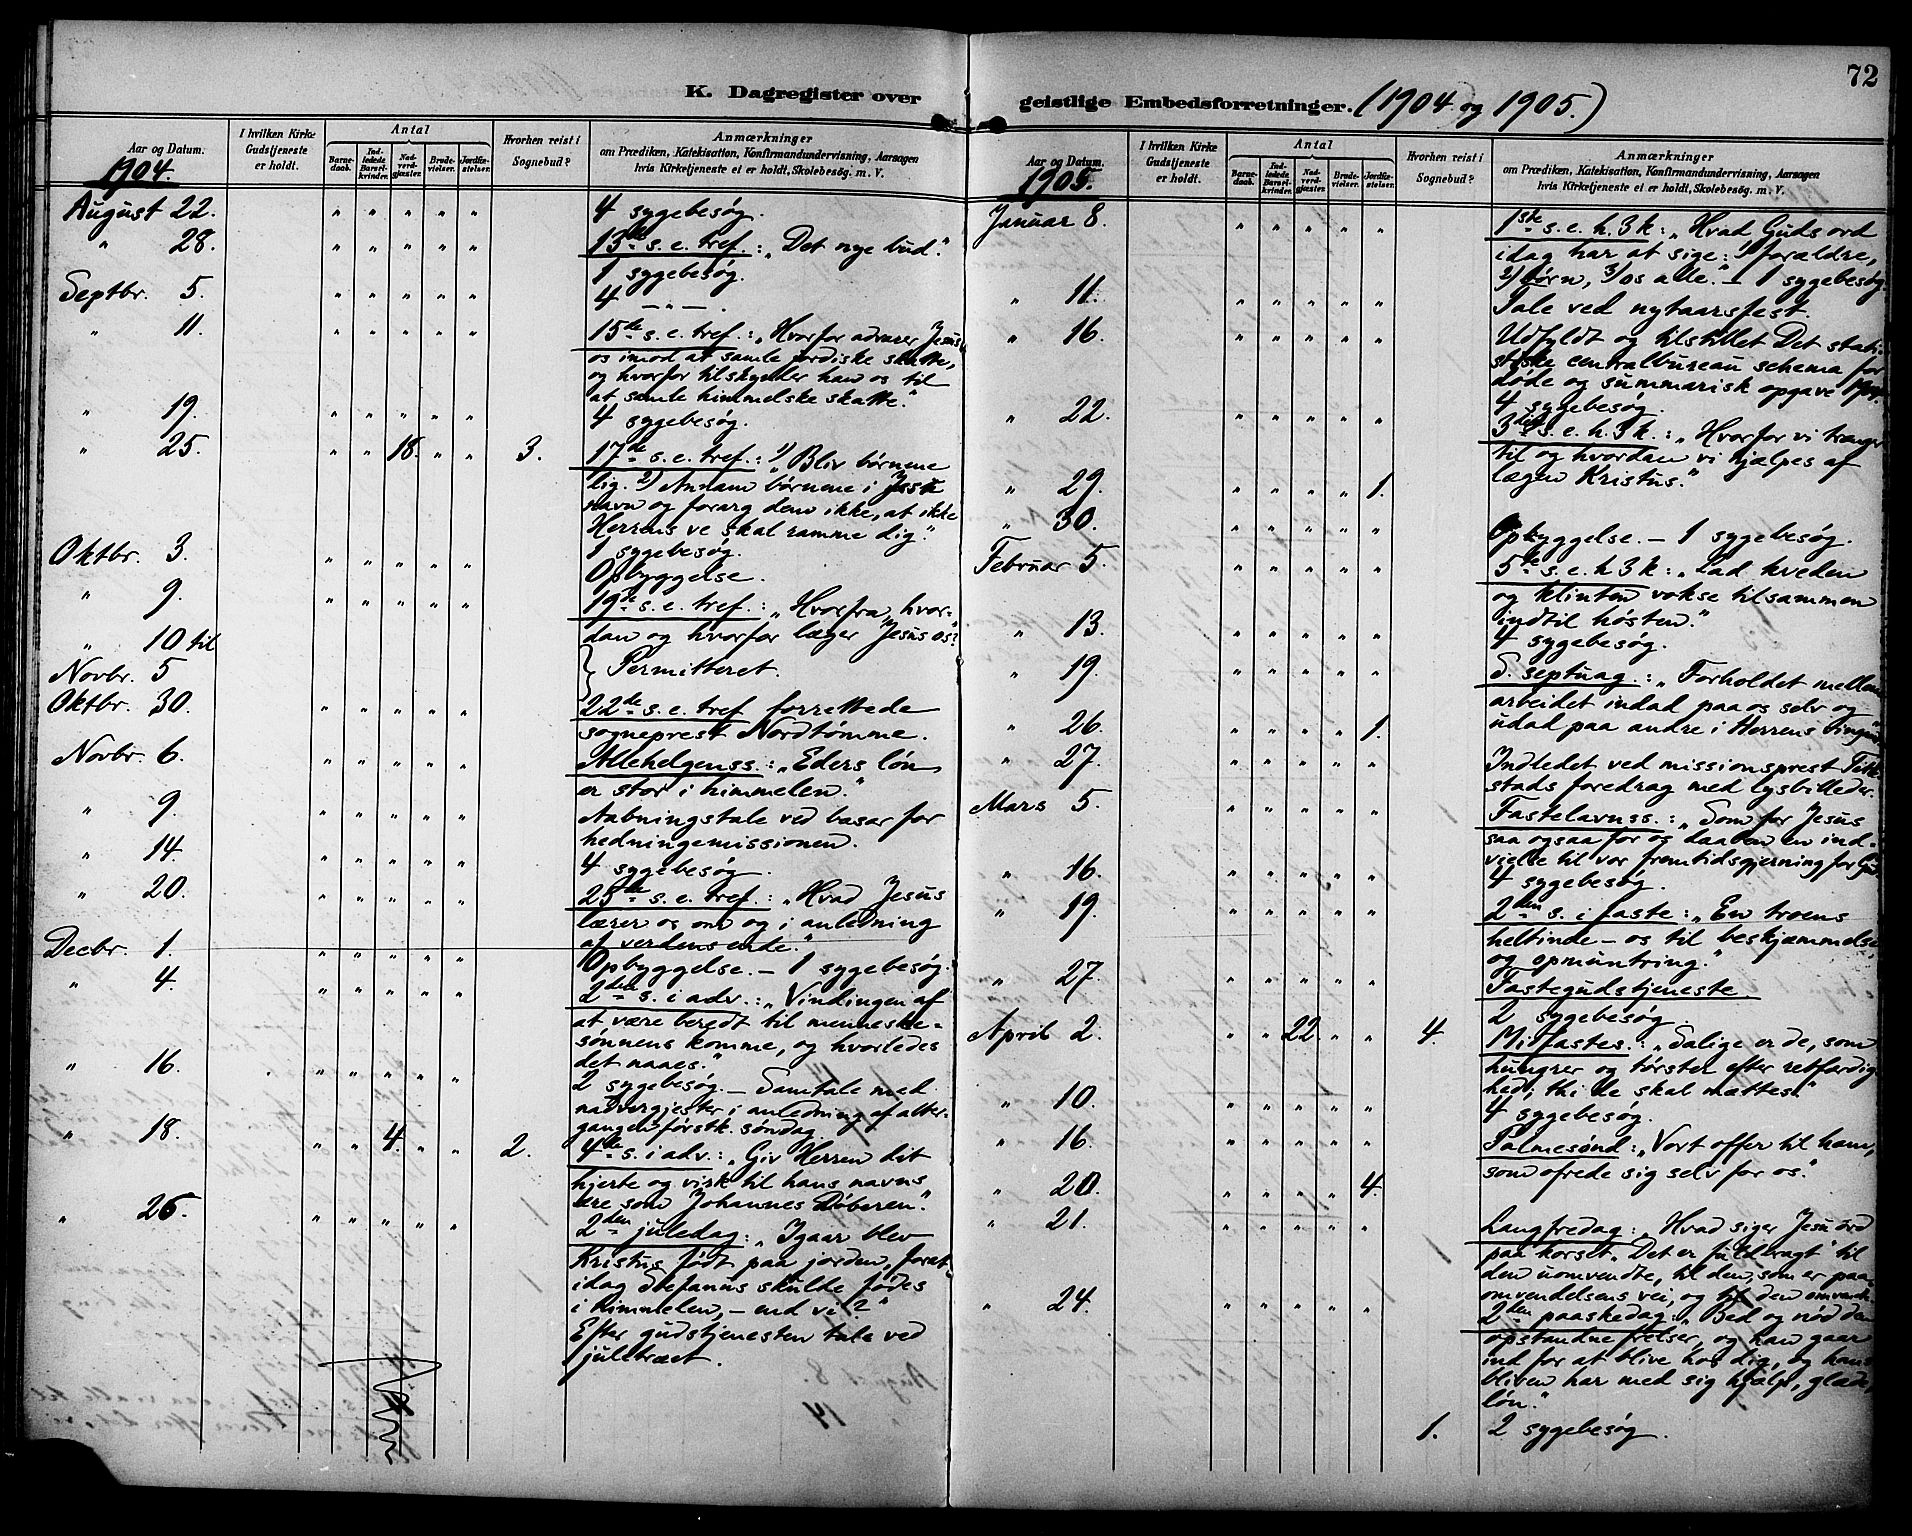 72
K. Dagregister over geistlige Embedsforretninger. (1904 og 1905.)
Aar og Datum.
1904.
I hvilken Kirke Gudstjeneste er holdt.
Antal
Barnedaab.
Indledede Barselkvinder.
Nadverdgjæster.
Brudevielser.
Jordfæstelser.
Hvorhen reist i Sognebud?
Anmærkninger
om Prædiken, Katekisation, Konfirmandundervisning, Aarsagen
hvis Kirketjeneste ei er holdt, Skolebesøg. m. V.
August 22. " " " " " 4 sygebesøg.
" 28. " " " " " 13de s. e. tref.: "Det nye bud."
1 sygebesøg.
Septbr. 5. " " " " " 4 — " —.
" 11. " " " " " 15de s. e. tref.: "Hvorfor advarer Jesus
os imod at samle jordiske skatte,
og hvorfor tilskynder han os til
at samle himmelske skatte."
" 19. " " " " " 4 sygebesøg.
" 25. " " 18. " " 3. 17de s. e. tref.: 1) Bliv børnene
lig. 2) Annam børnene i Jesu
navn og forarg dem ikke, at ikke
Herrens ve skal ramme dig."
1 sygebesøg.
Oktbr. 3. " " " " " Opbyggelse.
" 9. " " " " " 19de s. e. tref.: "Hvorfra, hvor-
dan og hvorfor læger Jesus os?"
" 10 til
Novbr. 5 } Permitteret.
Oktbr. 30. " " " " " 22de s. e. tref forrettede
sogneprest Nordtømme.
Novbr. 6. " " " " " Allehelgenss.: "Eders løn
er stor i himmelen."
" 9. " " " " " Aabningstale ved basar for
hedningemissionen.
" 14. " " " " " 4 sygebesøg.
" 20. " " " " " 25de s. e. tref.: "Hvad Jesus
lærer os om og i anledning
af verdens ende."
Decbr. 1. " " " " " Opbyggelse. – 1 sygebesøg.
" 4. " " " " " 2den s. i adv.: "Vindingen af
at være beredt til menneske-
sønnens komme, og hvorledes
det naaes."
" 16. " " " " " 2 sygebesøg. – Samtale med
nadvergjester i anledning af alter-
gangen førstk. søndag.
" 18. " " 4. " " 2. 4de s. i adv.: "Giv Herren dit
hjerte og virk til hans navns
ære som Johannes Døberen."
" 26. " " " " " 2den juledag: "Igaar blev
Kristus født paa jorden, forat
idag Stefanus skulde fødes
i himmelen, – end vi?"
Efter gudstjenesten tale ved
juletræet.
Aar og Datum.
1905.
I hvilken Kirke Gudstjeneste er holdt.
Antal
Barnedaab.
Indledede Barselkvinder.
Nadverdgjæster.
Brudevielser.
Jordfæstelser.
Hvorhen reist i Sognebud?
Anmærkninger
om Prædiken, Katekisation, Konfirmandundervisning, Aarsagen
hvis Kirketjeneste ei er holdt, Skolebesøg. m. V.
Januar 8. " " " " " 1ste s. e. h. 3 k.: "Hvad Guds ord
idag har at sige: 1) forældre,
2) børn, 3) os alle." – 1 sygebesøg.
" 11. " " " " " Tale ved nytaarsfest.
" 16. " " " " " Udfyldt og tilstillet Det stati-
stiske centralbureau schema for
døde og summarisk opgave
4 sygebesøg.
" 22. " " " " " 3die s. e. h. 3 k.: "Hvorfor vi trænger
til og hvordan vi hjælpes af
lægen Kristus."
" 29. " " " " 1.
" 30. " " " " " Opbyggelse. – 1 sygebesøg.
Februar 5. " " " " " 5te s. e. h. 3 k: "Lad hveden
og klinten vokse tilsammen
indtil høsten."
" 13. " " " " " 4 sygebesøg.
" 19. " " " " " S. septuag.: "Forholdet mellem
arbeidet indad paa os selv og
udad paa andre i Herrens vingaard."
" 26. " " " " 1.
" 27. " " " " " Indledet ved missionsprest
stads foredrag med lysbilleder.
Mars 5. " " " " " Fastelavnss.: "Som for Jesus
saa ogsaa for os daaben en ind-
vielse til vor fremtidsgjerning for Gud."
" 16. " " " " " 4 sygebesøg.
" 19. " " " " " 2den s. i faste: "En troens
heltinde – os til beskjæmmelse
og opmuntring."
" 27. " " " " " Fastegudstjeneste.
2 sygebesøg.
April 2. " " 22. " " 4. Midfastes.: "Salige er de, som
hungrer og tørster efter retfærdig-
hed; thi de skal mættes."
" 10. " " " " " 4 sygebesøg.
" 16. " " " " " Palmesønd: "Vort offer til ham,
som ofrede sig selv for os."
" 20. " " " " 4.
" 21. " " " " " Langfredag: "Hvad siger Jesu ord
paa korset "Det er fuldbragt" til
den uomvendte, til den, som er paa
omvendelsens vei, og til den omvendte.
" 24. " " " " " 2den paaskedag: "Bed og nød den
opstandne frelser, og han gaar
ind for at blive hos dig, og hans
bliven har med sig hjælp, glæde,
løn."
1. 2 sygebesøg.